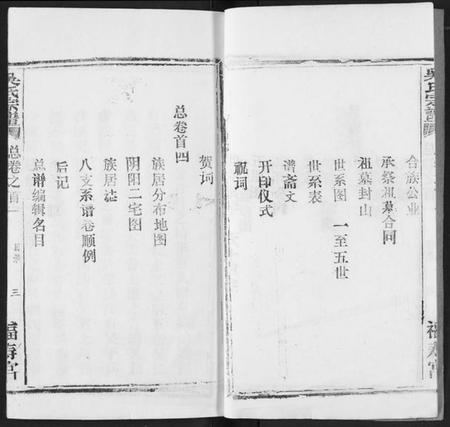 吴氏宗谱
合族公业
承祭祖墓合同
祖墓封山
世系图 一至五世
世系表
谱斋文
开印仪式
祝词
福寿宫
贺词
总卷首四
族居分布地图
阴阳二宅图
族居志
八支系谱卷顺例
后记
总谱编辑名目
吳氏宗譜
总卷之首
目录
三
福寿宫